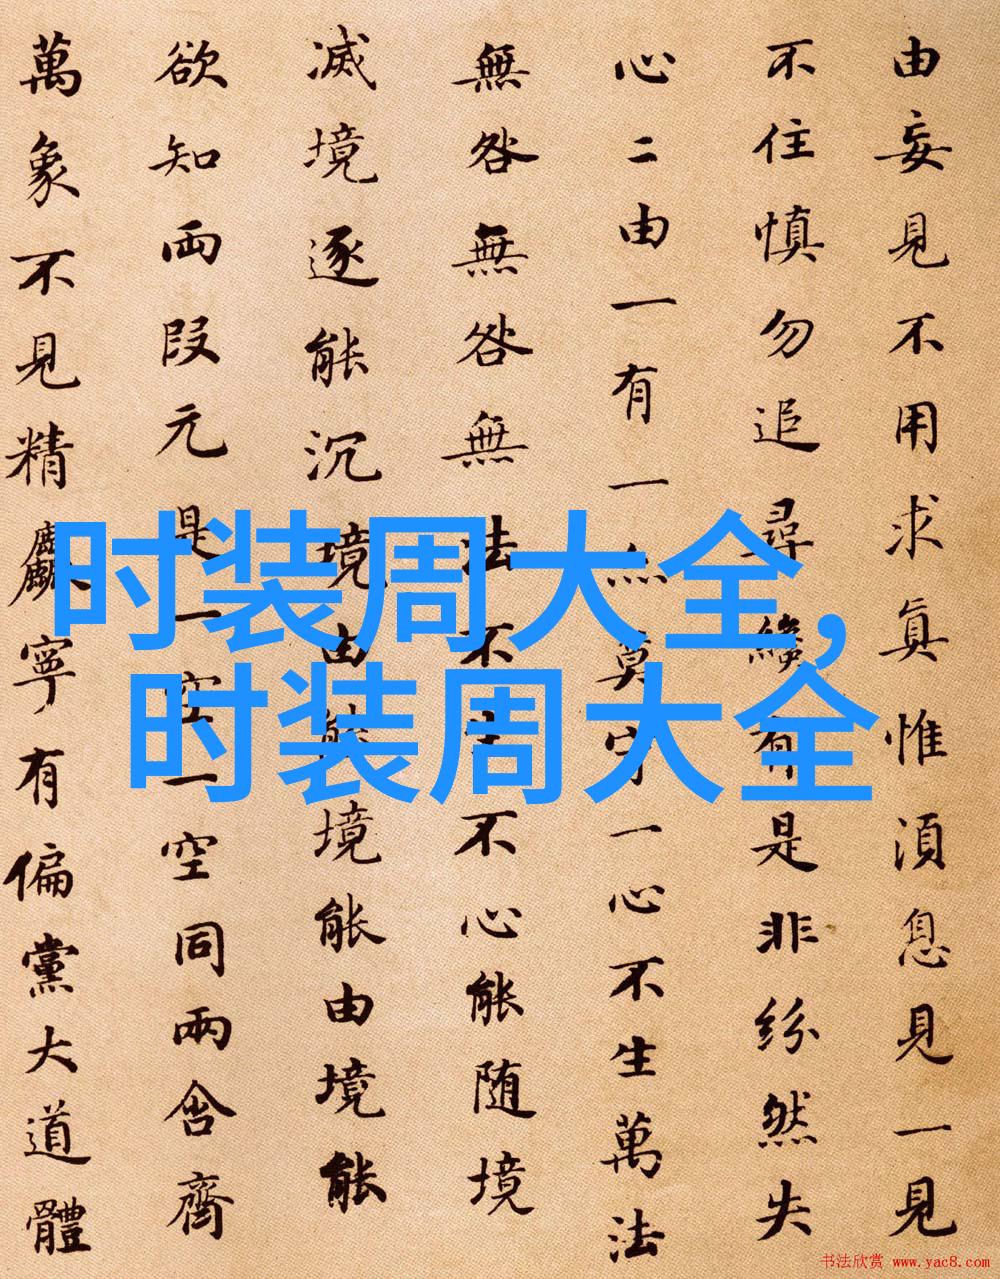 由妄見不用求真惟湏息見一見
不住慎勿追尋纔有是非紛然失
心二由一有一亦莫守一心不生萬法
無咎無咎無法不生不心能随境
滅境逐能沉境由能境能由境能
欲知兩段元是一空一空同兩含齊
萬象不見精麤寧有偏黨大道體
时装周大全,
时装周大全
书法欣赏 www.yac8.com